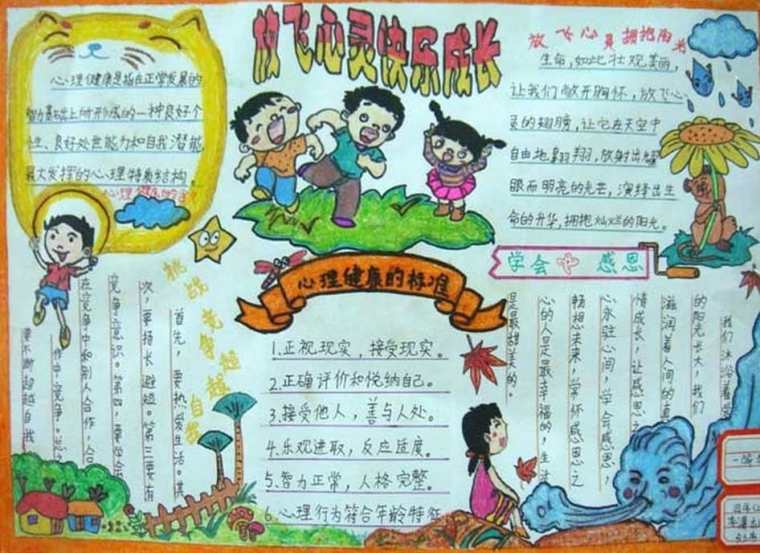 放飞心灵快乐成长
心理健康是指在正常发展的
智力基础上所形成的一种良好个
性、良好处世能力和自我潜能
最大发挥的心理特质结构。
放飞心灵 拥抱阳光
生命，如此壮观美丽，
让我们敞开胸怀，放飞心
灵的翅膀，让它在天空中
自由地翱翔，放射出耀
眼而明亮的光芒，演绎出生
命的升华，拥抱灿烂的阳光。
挑战竞争超越自我
首先，要热爱生活。其
次，要扬长避短。第三要有
竞争意识。第四，要学会
在竞争中和别人合作，合
作中竞争。总之
要不断超越自我
心理健康的标准
1.正视现实，接受现实。
2.正确评价和悦纳自己。
3.接受他人，善与人处。
4.乐观进取，反应适度。
5.智力正常，人格完整。
6.心理行为符合年龄特征
学会 感恩
我们沐浴着
的阳光长大，我们
滋润着人间的真
情成长，让感恩之
心永驻心间，学会感恩，
畅想未来，常怀感恩之
心的人是最幸福的，生活
是最甜美的。